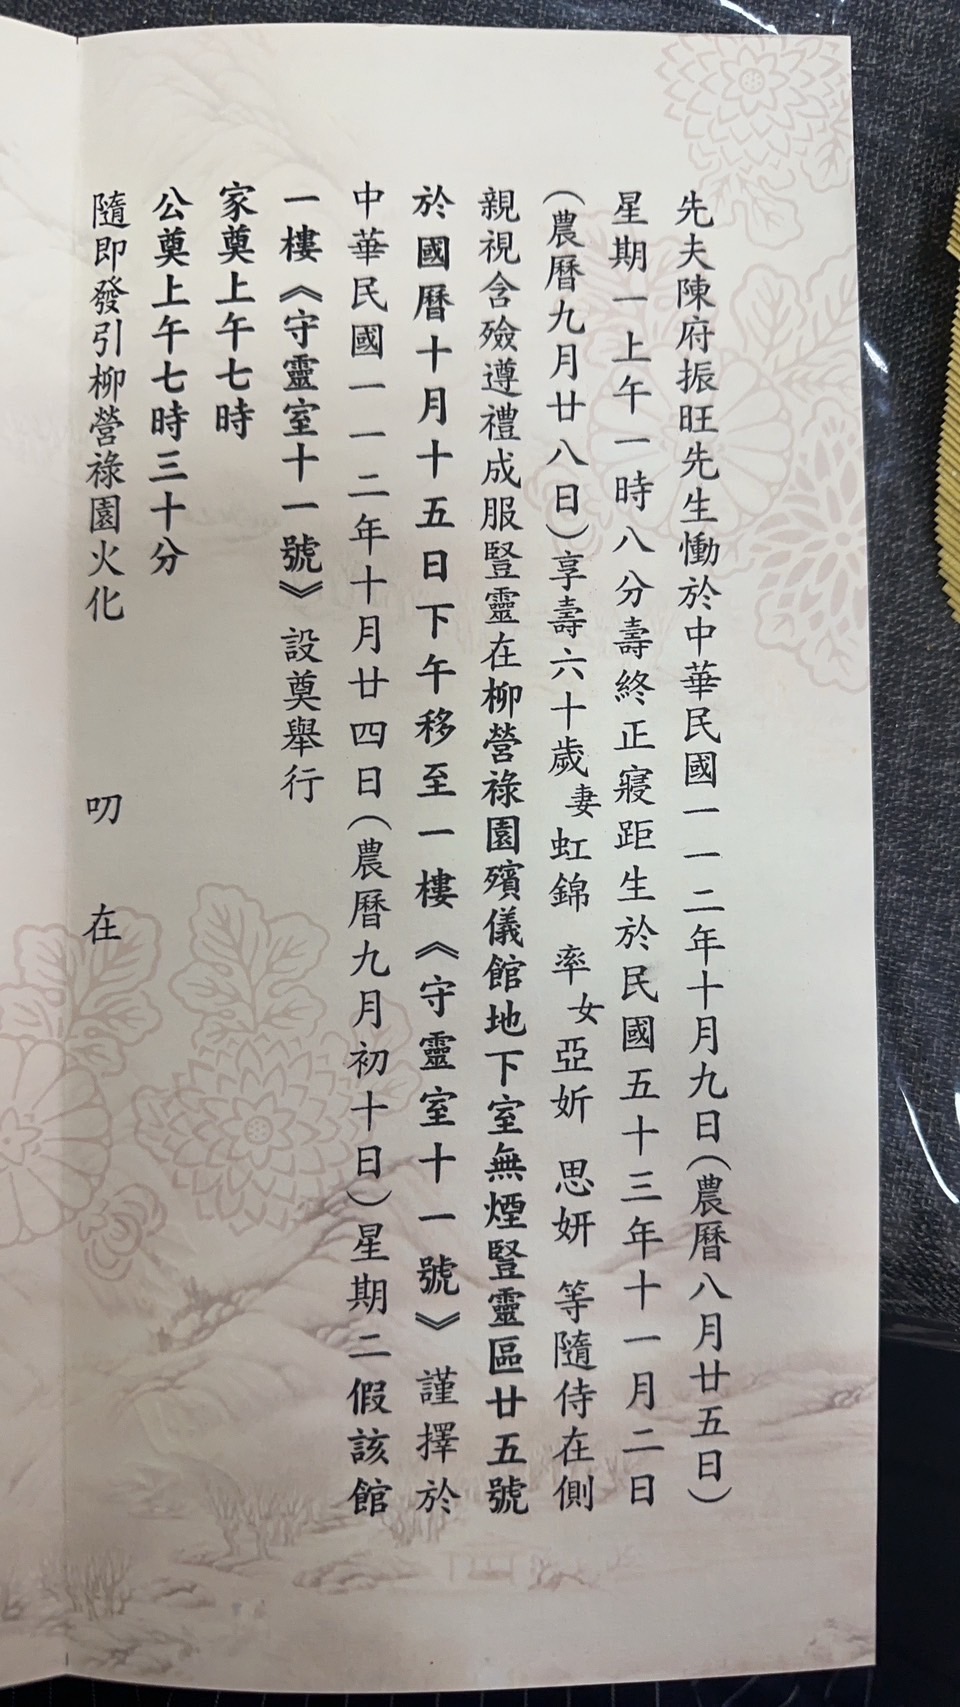 先夫陳府振旺先生慟於中華民國一一二年十月九日(農曆八月廿五日)
星期一上午一時八分壽終正寢距生於民國五十三年十一月二日
(農曆九月廿八日)享壽六十歲妻虹錦 率女亞妡 思妍 等隨侍在側
親視含殮遵禮成服豎靈在柳營祿園殯儀館地下室無煙豎靈區廿五號
於國曆十月十五日下午移至一樓《守靈室十一號》謹擇於
中華民國一一二年十月廿四日(農曆九月初十日)星期二假該館
一樓《守靈室十一號》設奠舉行
家奠上午七時
公奠上午七時三十分
隨即發引柳營祿園火化 叨 在